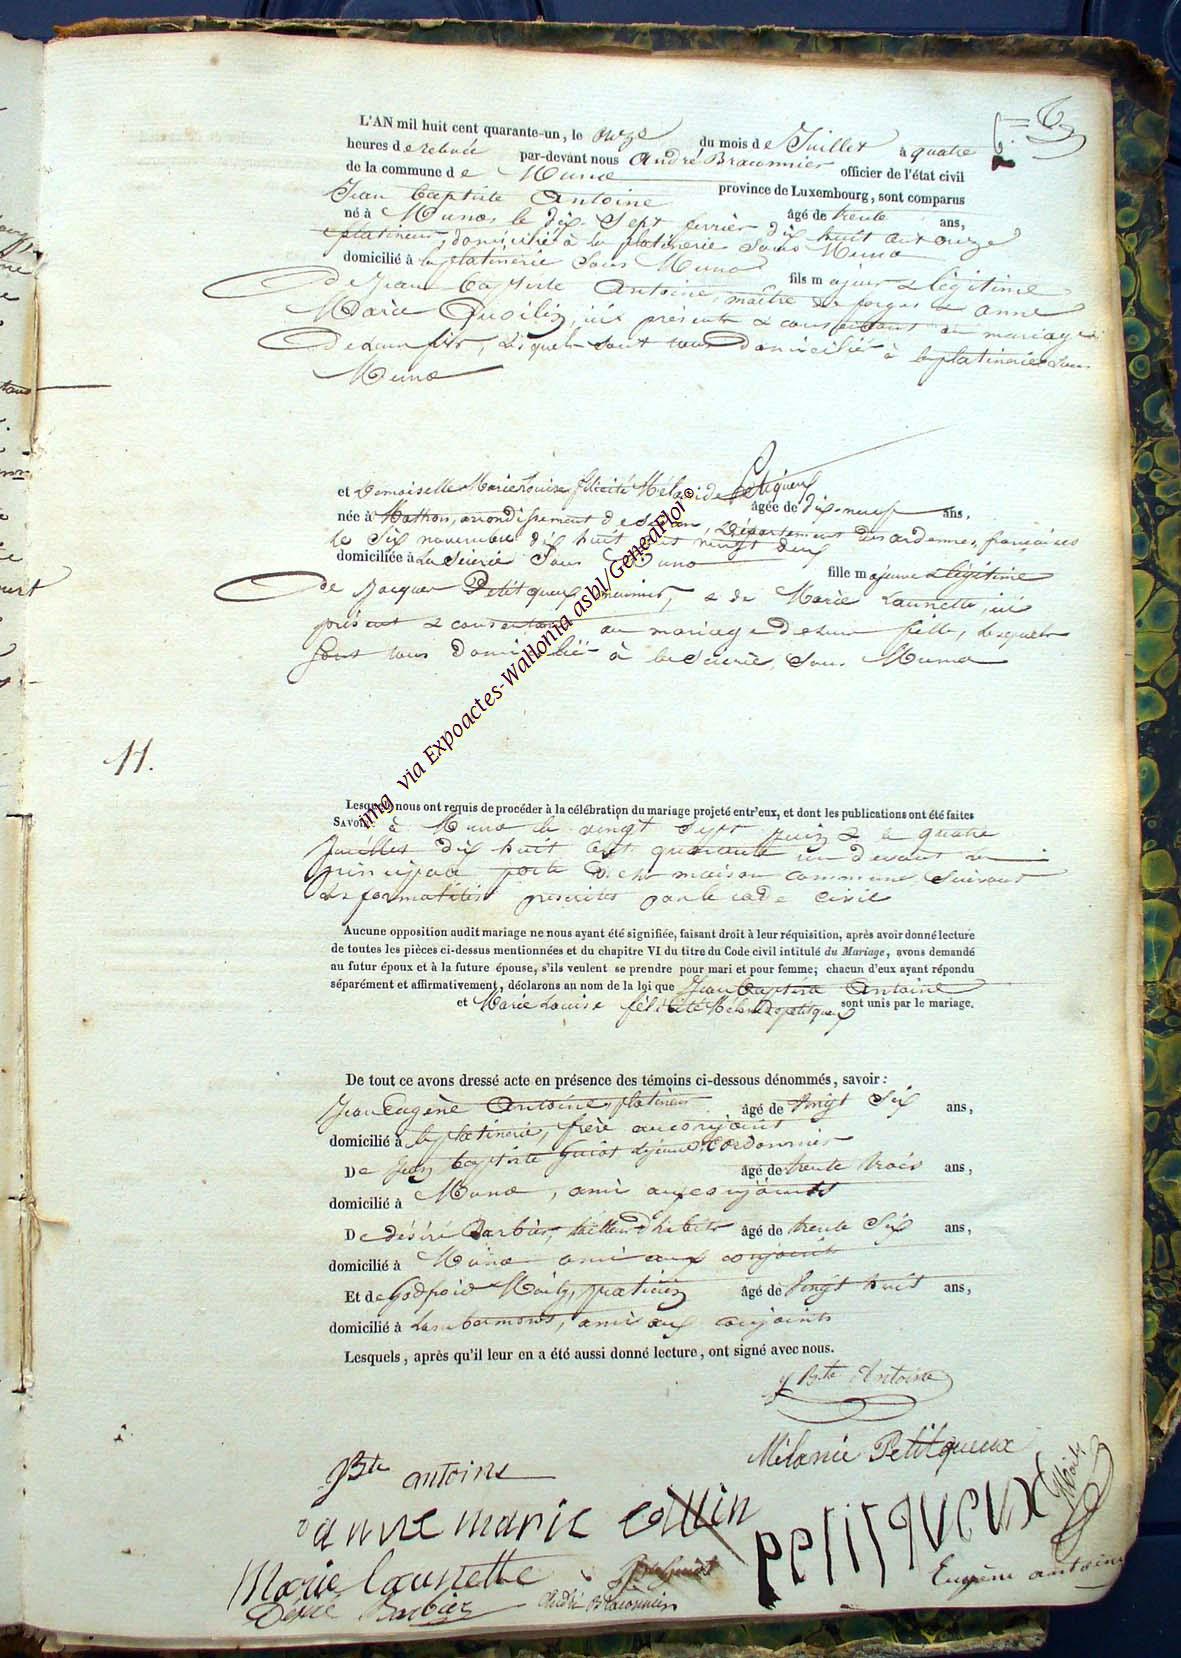 L'AN mil huit cent quarante-un, le onze du mois de Juillet à quatre
heures de relevée par-devant nous André Braconnier officier de l'état civil
de la commune de Muno province de Luxembourg, sont comparus
Jean Baptiste Antoine âgé de trente ans,
né à Muno, le dix Sept fevrier dix huit cent onze
platineur, domicilié à la platinerie Sous Muno
domicilié à la platinerie Sous Muno fils majeur & légitime
De Jean Baptiste Antoine, maître de forges & anne
Marie, ici présents & consentant au mariage
De Leur fils, Lesquels sont tous Domiciliés à la platinerie Sous
Muno
et Demoiselle Marie Louise félicité Mélanide Petitqueux âgée de dix-neuf ans,
née à Mathon, arrondissement de Sedan, Département des ardennes, françaises
le Six novembre dix huit cent vingt deux
domiciliée à La Scierie Sous Muno fille majeure & légitime
De Jacques Petitqueux, meunier, & de Marie Launette, ici
présent & consentant au mariage de Leur fille, Lesquels
Sont tous Domiciliés à la Scierie, Sous Muno
11.
Lesquels nous ont requis de procéder à la célébration du mariage projeté entr'eux, et dont les publications ont été faites
SAVOIR: à Muno le vingt Sept Juin & le quatre
Juillet dix huit Cent quarante un devant la
principale porte De la maison commune Suivant
Les formalités prescrites par le code civil
Aucune opposition audit mariage ne nous ayant été signifiée, faisant droit à leur réquisition, après avoir donné lecture
de toutes les pièces ci-dessus mentionnées et du chapitre VI du titre du Code civil intitulé du Mariage, avons demandé
au futur époux et à la future épouse, s'ils veulent se prendre pour mari et pour femme; chacun d'eux ayant répondu
séparément et affirmativement, déclarons au nom de la loi que Jean Baptiste Antoine
et Marie Louise félicité Mélanide petitqueux sont unis par le mariage.
De tout ce avons dressé acte en présence des témoins ci-dessous dénommés, savoir:
Jean Eugène Antoine, platineur âgé de Vingt Six ans,
domicilié à la platinerie, frère au conjoint
De Jean Baptiste Guiot le jeune, Cordonnier âgé de trente trois ans,
domicilié à Muno, ami aux conjoints
De désiré Barbier, tailleur d'habits âgé de trente Six ans,
domicilié à Muno ami aux conjoints
Et de Godfroid, praticien âgé de Vingt huit ans,
domicilié à Lambermont, ami aux conjoints
Lesquels, après qu'il leur en a été aussi donné lecture, ont signé avec nous.
J Bte Antoine
Mélanie Petitqueux
JBte antoine
anne marie collin
petitqueux
Marie Launette
JB Guiot
Eugène antoine
Désiré Barbier
André Braconnier
img via Expoactes-Wallonia asbl/GeneaFlor©